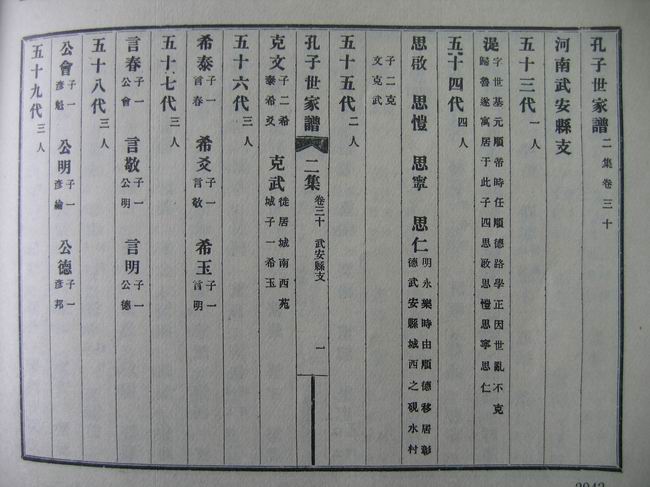 孔子世家譜 二集卷三十
河南武安縣支
五十三代 一人
湜 字世基元順帝時任順德路學正因世亂不克
歸魯遂寓居于此子四思啟思愷思寧思仁
五十四代 四人
思啟 思愷 思寧 思仁 明永樂時由順德移居彰
德武安縣城西之硯水村
子二克
文克武
五十五代 二人
孔子世家譜 二集 卷三十 武安縣支 一
克文 子二希泰希爻 克武 徙居城南西苑城子一希玉
五十六代 三人
希泰 子一言春 希爻 子一言敬 希玉 子一言明
五十七代 三人
言春 子一公會 言敬 子一公明 言明 子一公德
五十八代 三人
公會 子一彥魁 公明 子一彥綸 公德 子一彥邦
五十九代 三人